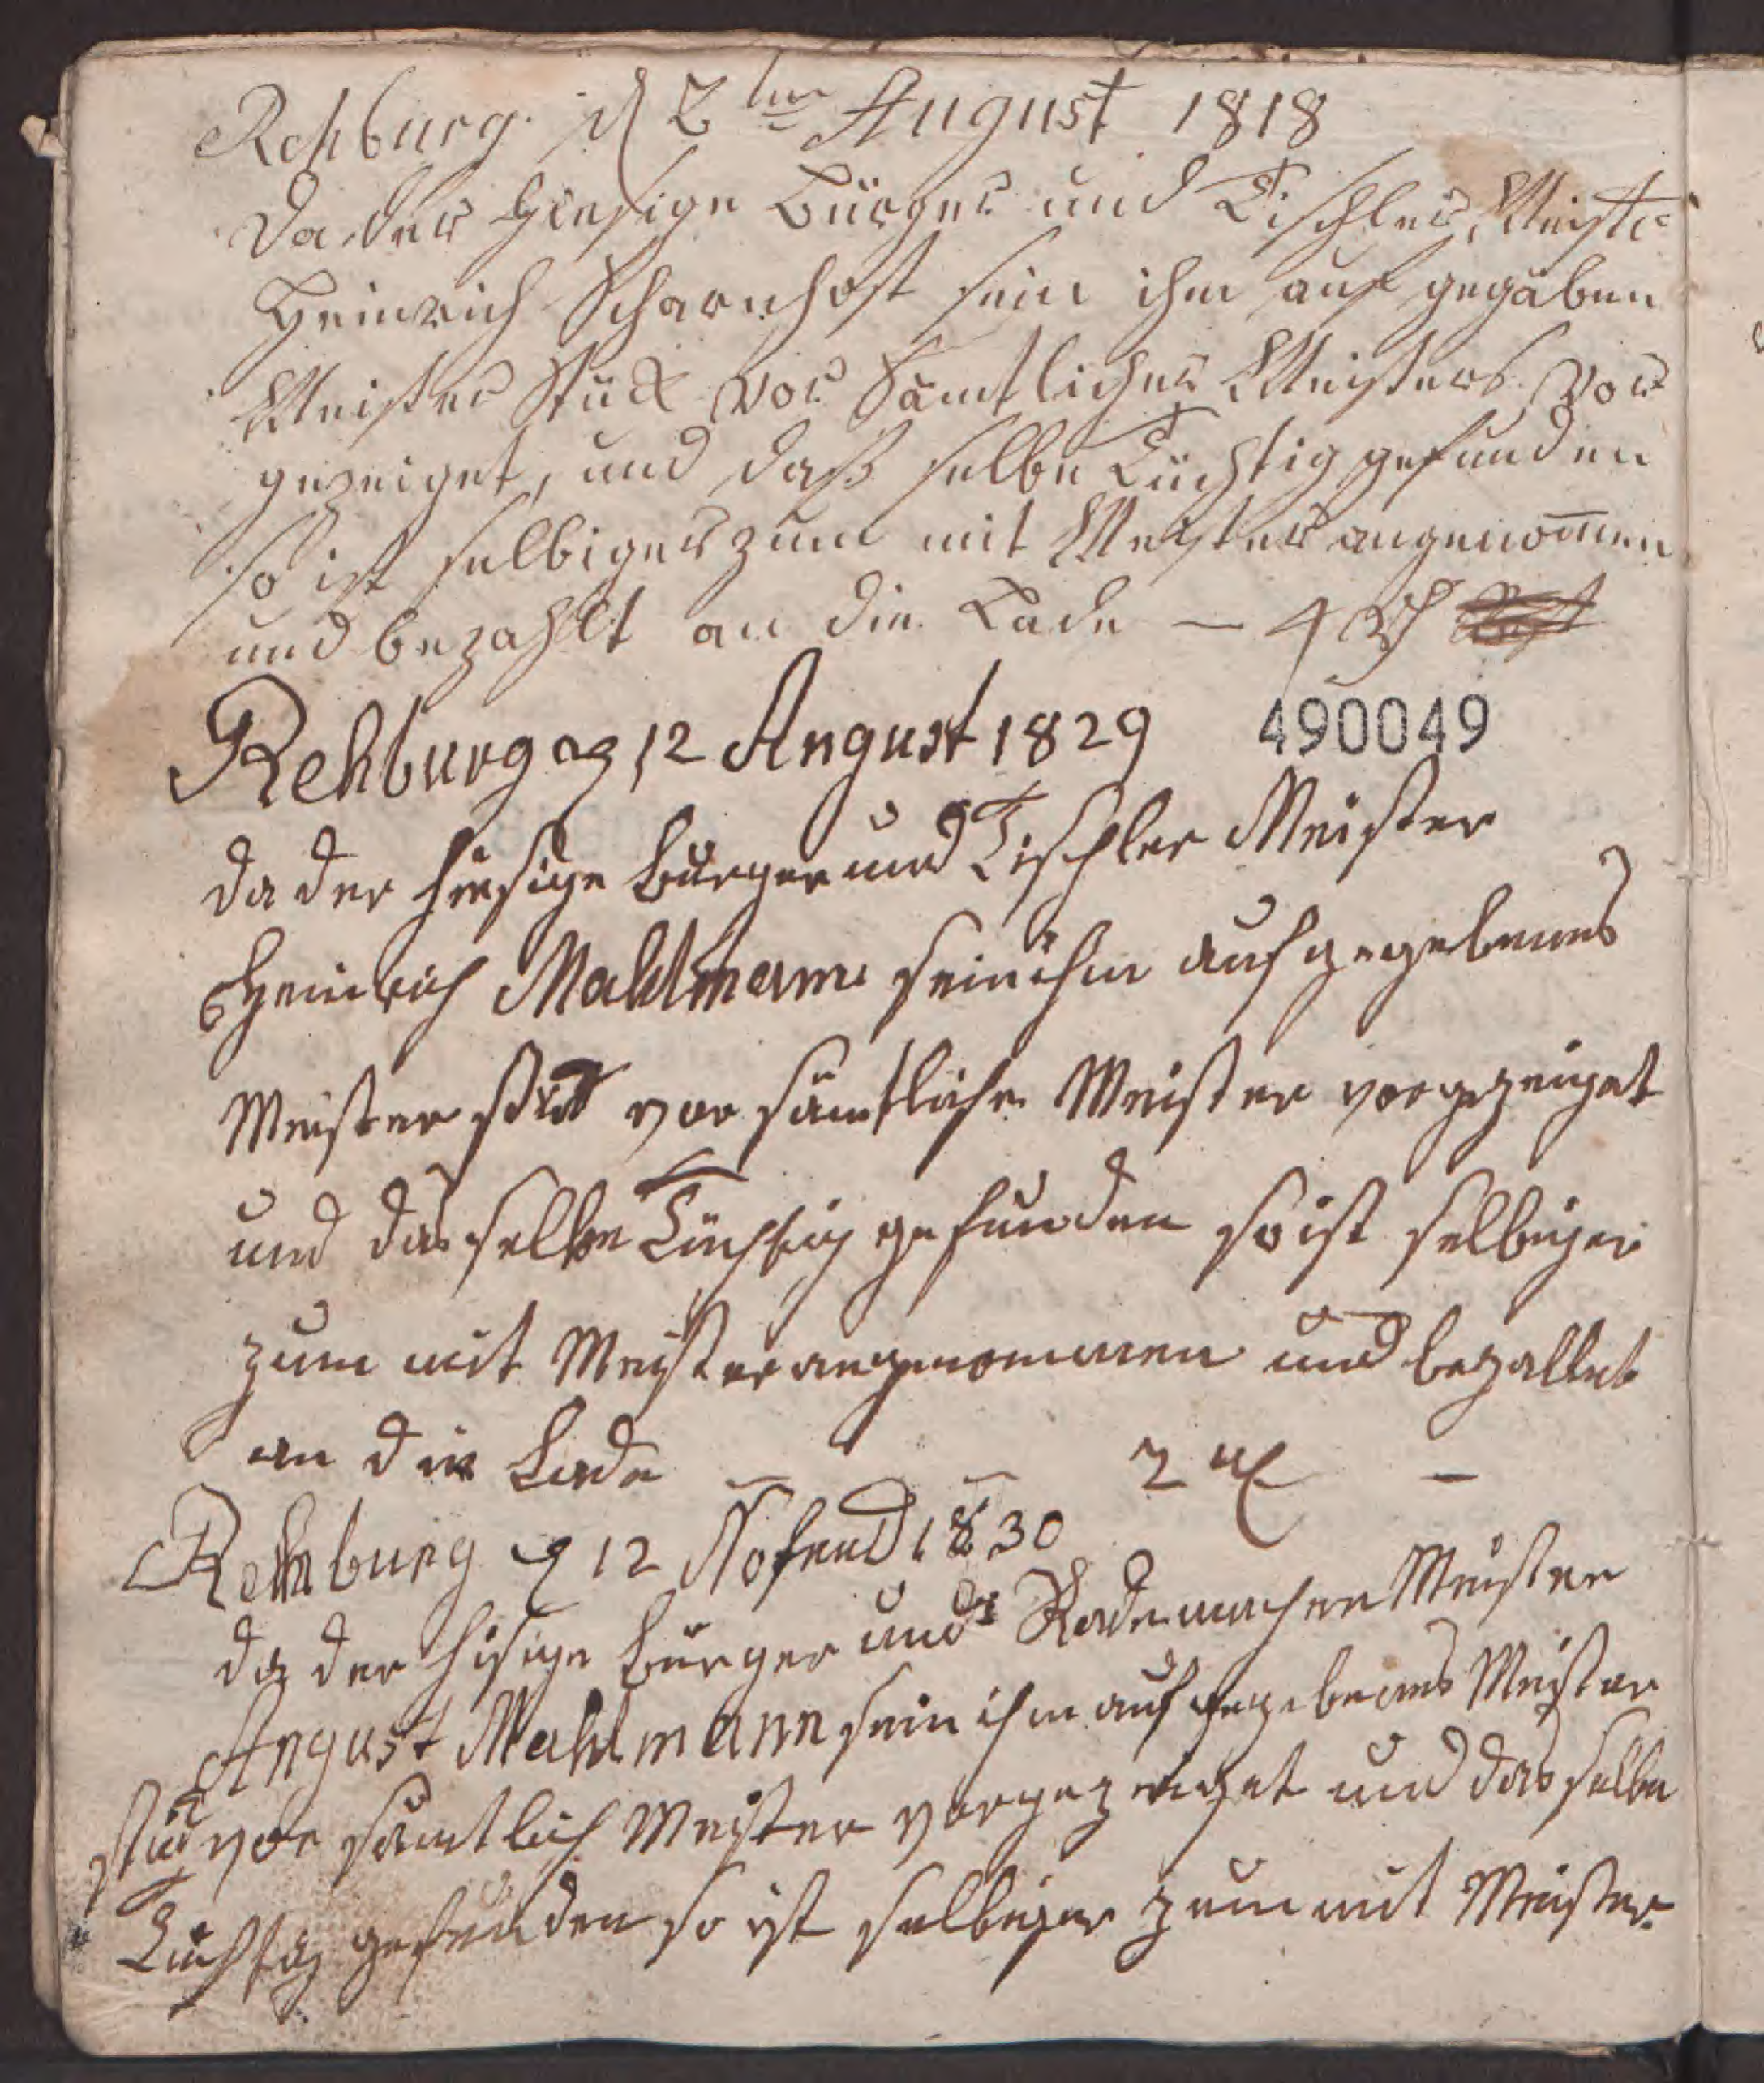 Rehburg. d 2ten August 1818
Da der Hiesige Bürger und Tischler, Meister
Heinrich Scharnhost sein ihm auf gegäben
Meister Stück vor Sämtlicher Meisters vor
gezeiget, und daß selbe Tüchtig gefunden
so ist selbiger zum mit Meister angenom̅en
und bezahlt an die Lade — 4 Rth
Rehburg d 12 August 1829
490049
da der hiesige Bürger und Tischler Meister
Heinrich Mahlmann sein ihm aufgegebenes
Meister stük vor sämtliche Meister vorgezeiget
und das selbe Tüchtig gefunden so ist selbiger
zum mit Meister angenommen und bezallet
an die Lade — — 2 rth —
Rehburg d 12 Nofemb 1830
da der hisige Bürger und Rademacher Meister
August Mahlmann sein ihm aufgegebenes Meister
stük vor sämtlich Meister vorgezeiget und das selbe
Tüchtig gefunden so ist selbiger zum mit Meister